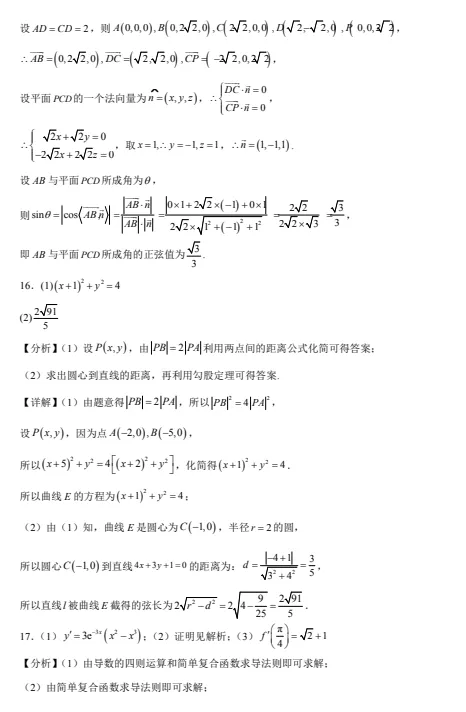 设 AD = CD = 2，则 A(0,0,0), B(0,2√2,0), C(2√2,0,0), D(√2,-√2,0), P(0,0,2√2)，
∴ AB = (0,2√2,0), DC = (√2,√2,0), CP = (-2√2,0,2√2)，
设平面 PCD 的一个法向量为 n = (x,y,z)，∴ { DC·n = 0
CP·n = 0，
∴ { √2x + √2y = 0
-2√2x + 2√2z = 0，取 x = 1, ∴ y = -1, z = 1，∴ n = (1,-1,1).
设 AB 与平面 PCD 所成角为 θ，
则 sinθ = |cos⟨AB,n⟩| = |AB·n| / |AB|·|n| = |0×1+2√2×(-1)+0×1| / 2√2×√1²+(-1)²+1² = 2√2 / 2√2×√3 = √3/3，
即 AB 与平面 PCD 所成角的正弦值为 √3/3.
16．(1)(x+1)²+y²=4
(2) 2√91/5
【分析】（1）设 P(x,y)，由 |PB| = 2|PA| 利用两点间的距离公式化简可得答案；
（2）求出圆心到直线的距离，再利用勾股定理可得答案.
【详解】（1）由题意得 |PB| = 2|PA|，所以 |PB|² = 4|PA|²，
设 P(x,y)，因为点 A(-2,0), B(-5,0)，
所以 (x+5)²+y²=4[(x+2)²+y²]，化简得 (x+1)²+y²=4．
所以曲线 E 的方程为 (x+1)²+y²=4；
（2）由（1）知，曲线 E 是圆心为 C(-1,0)，半径 r = 2 的圆，
所以圆心 C(-1,0) 到直线 4x+3y+1=0 的距离为：d = |-4+1| / √3²+4² = 3/5，
所以直线 l 被曲线 E 截得的弦长为 2√r²-d² = 2√4-9/25 = 2√91/5．
17．（1）y′=3e⁻³ˣ(x²-x³)；（2）证明见解析；（3）f′(π/4)=√2+1
【分析】（1）由导数的四则运算和简单复合函数求导法则即可求解；
（2）由简单复合函数求导法则即可求解；